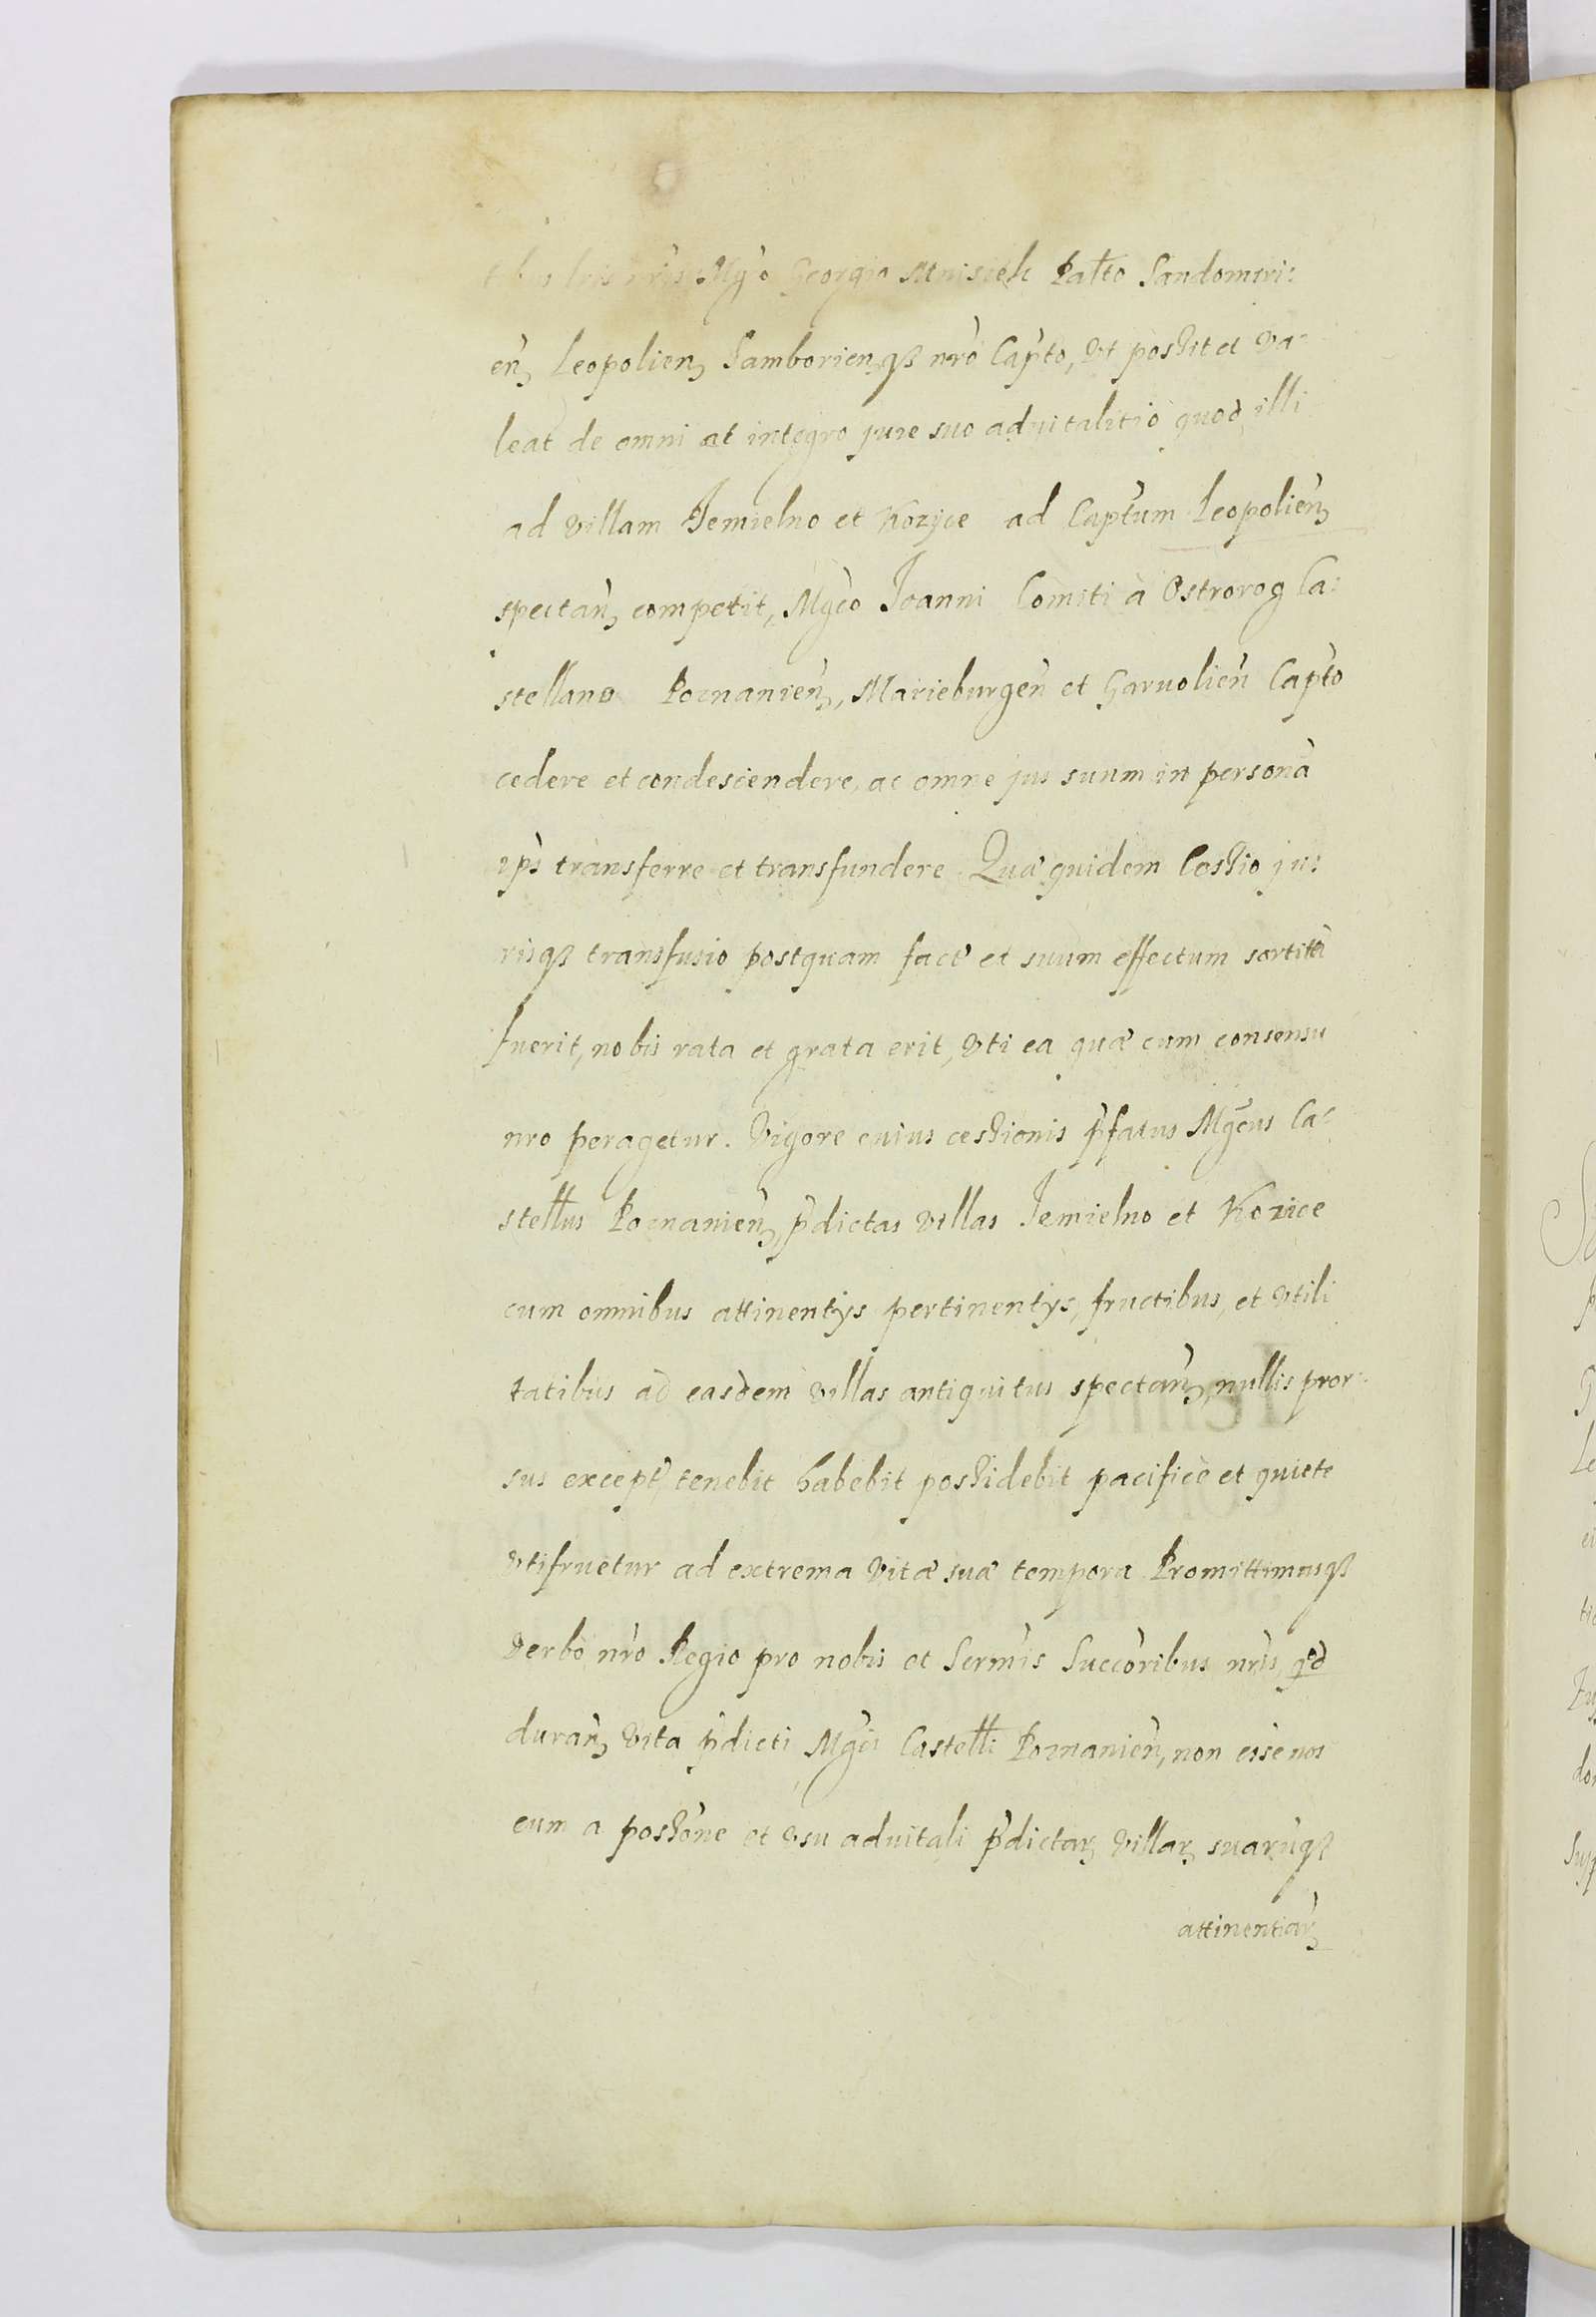 tibus lris nris Mgco Georgio Mnisich Palto Sandomiri:
en, Leopolien, Samborienqȝ nro Capto, Vt possit et va-
leat de omni at integro jure suo aduitalitio quod illi
ad Villam Jemielno et Kozyce ad Captum Leopolien,
spectan, competit, Mgco Joanni Comiti à Ostrorog Ca:
stellano Poznanien, Marieburgen et Garuolien Capto
cedere et condescendere, ac omne jus suum in persona
ips transferre et transfundere. Quæ quidem Cessio ju:
risqȝ transfusio postquam fact' et suum effectum sortita
fuerit, nobis rata et grata erit, Vti ea quæ cum consensu
nro peragetur. Vigore cuius cessionis pfatus Mgcus Ca-
stellus Poznanien, pdictas Villas Jemielno et Kozice
cum omnibus attinentijs pertinentijs, fructibus, et Vtili
tatibus ad easdem Villas antiquitus spectan, nullis pror:
sus except, tenebit habebit possidebit pacificè et quiete
Vtifruetur ad extrema Vitæ suæ tempora Promittimusqȝ
Verbo nro Regio pro nobis et Sermis Succoribus nris, qd
duran, Vita pdicti Mgci Castelli Poznanien, non esse nos
eum a possone et Vsu aduitali pdictar, Villar, suaruqȝ
attinentiar,